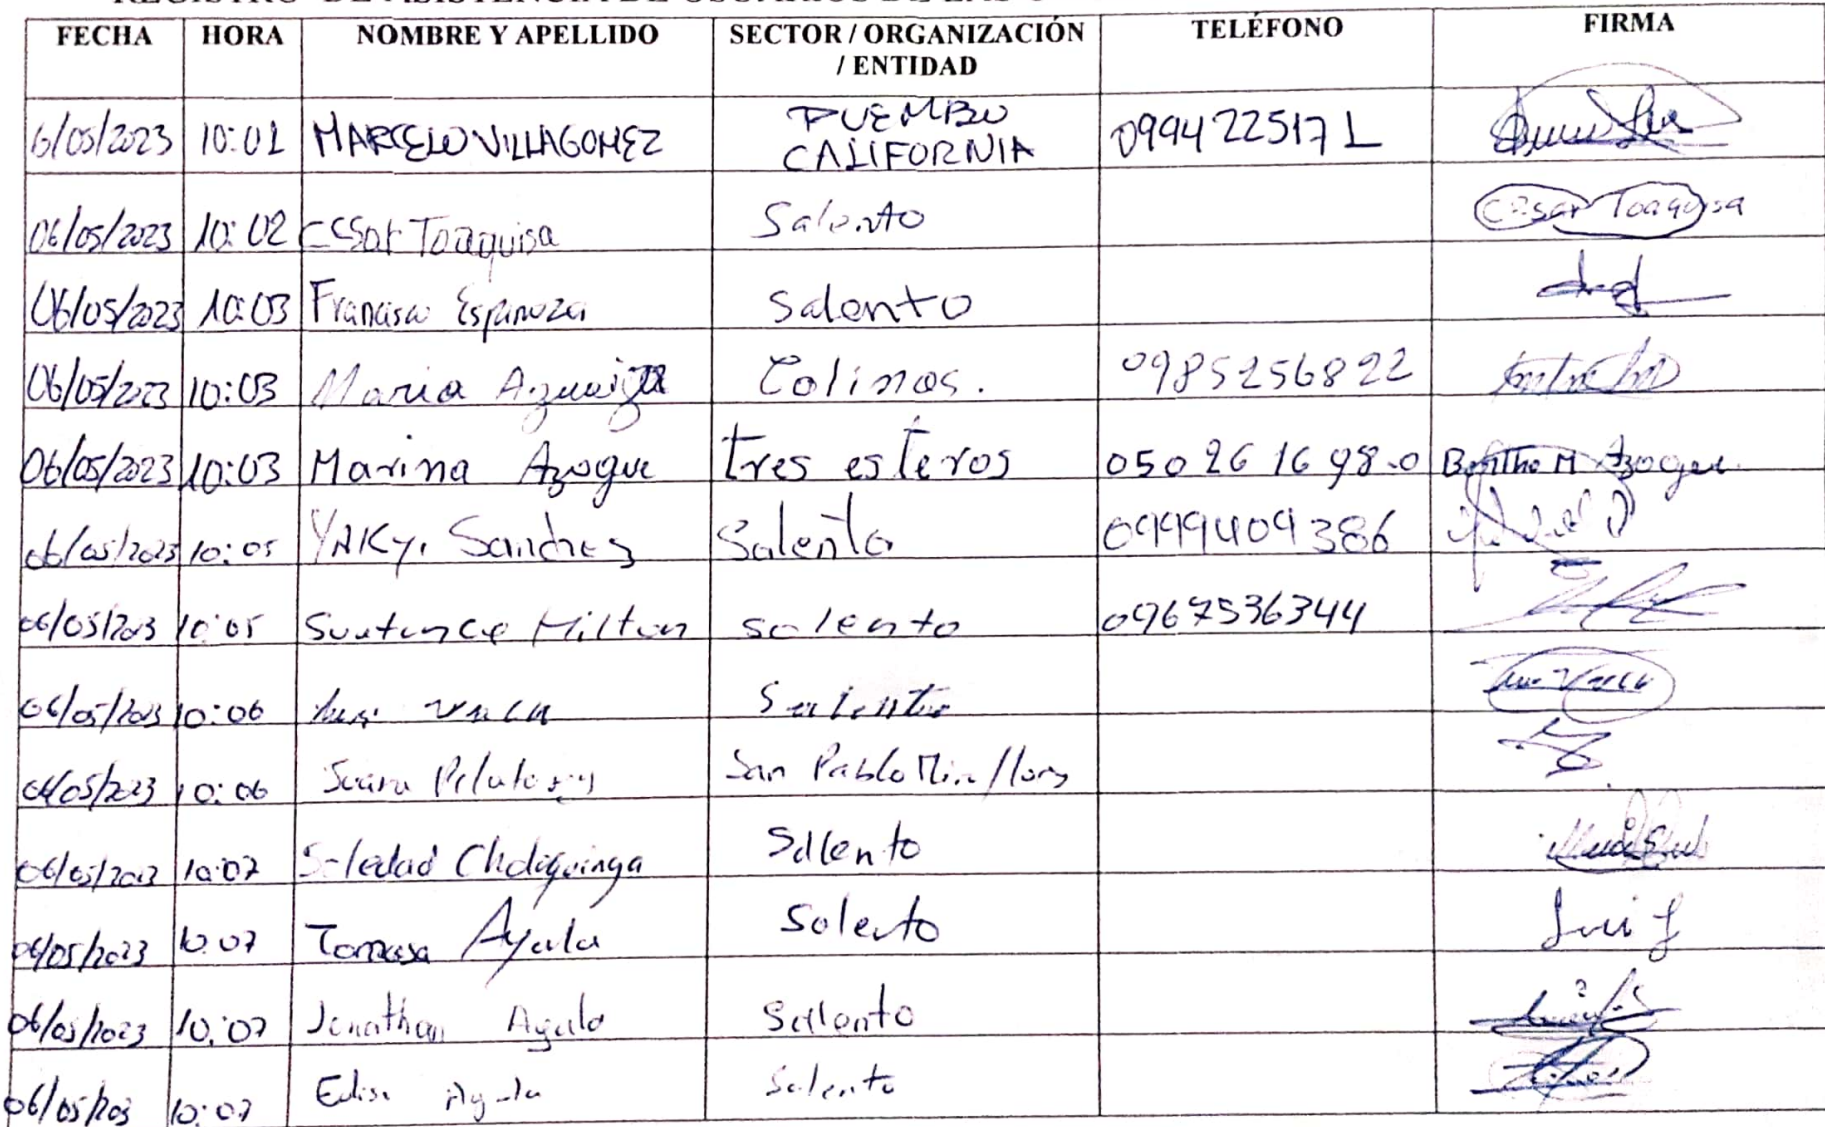 REGISTRO DE ASISTENCIA DE USUARIOS DE LAS
FECHA HORA NOMBRE Y APELLIDO SECTOR / ORGANIZACIÓN / ENTIDAD TELÉFONO FIRMA
6/05/2023 10:01 MARCELO VILLAGOMEZ PUEMBO CALIFORNIA 0994225171
06/05/2023 10:02 Toaquisa Salento Cesar Toaquisa
06/05/2023 10:03 Francisco Espinoza Salento
06/05/2023 10:03 Maria Colinas. 0985256822
06/05/2023 10:03 Marina Azogue tres esteros 050261698-0 Bertha M Azogue
06/05/2023 10:05 Sanchez Salento 0999409386
06/05/2023 10:05 Milton salento 0967536344
06/05/2023 10:06 Vaca Salento
06/05/2023 10:06 San Pablo Miraflores
06/05/2023 10:07 Soledad Salento
06/05/2023 10:07 Tomasa Ayala Salento
06/05/2023 10:07 Jonathan Ayala Salento
06/05/203 10:07 Ayala Salento